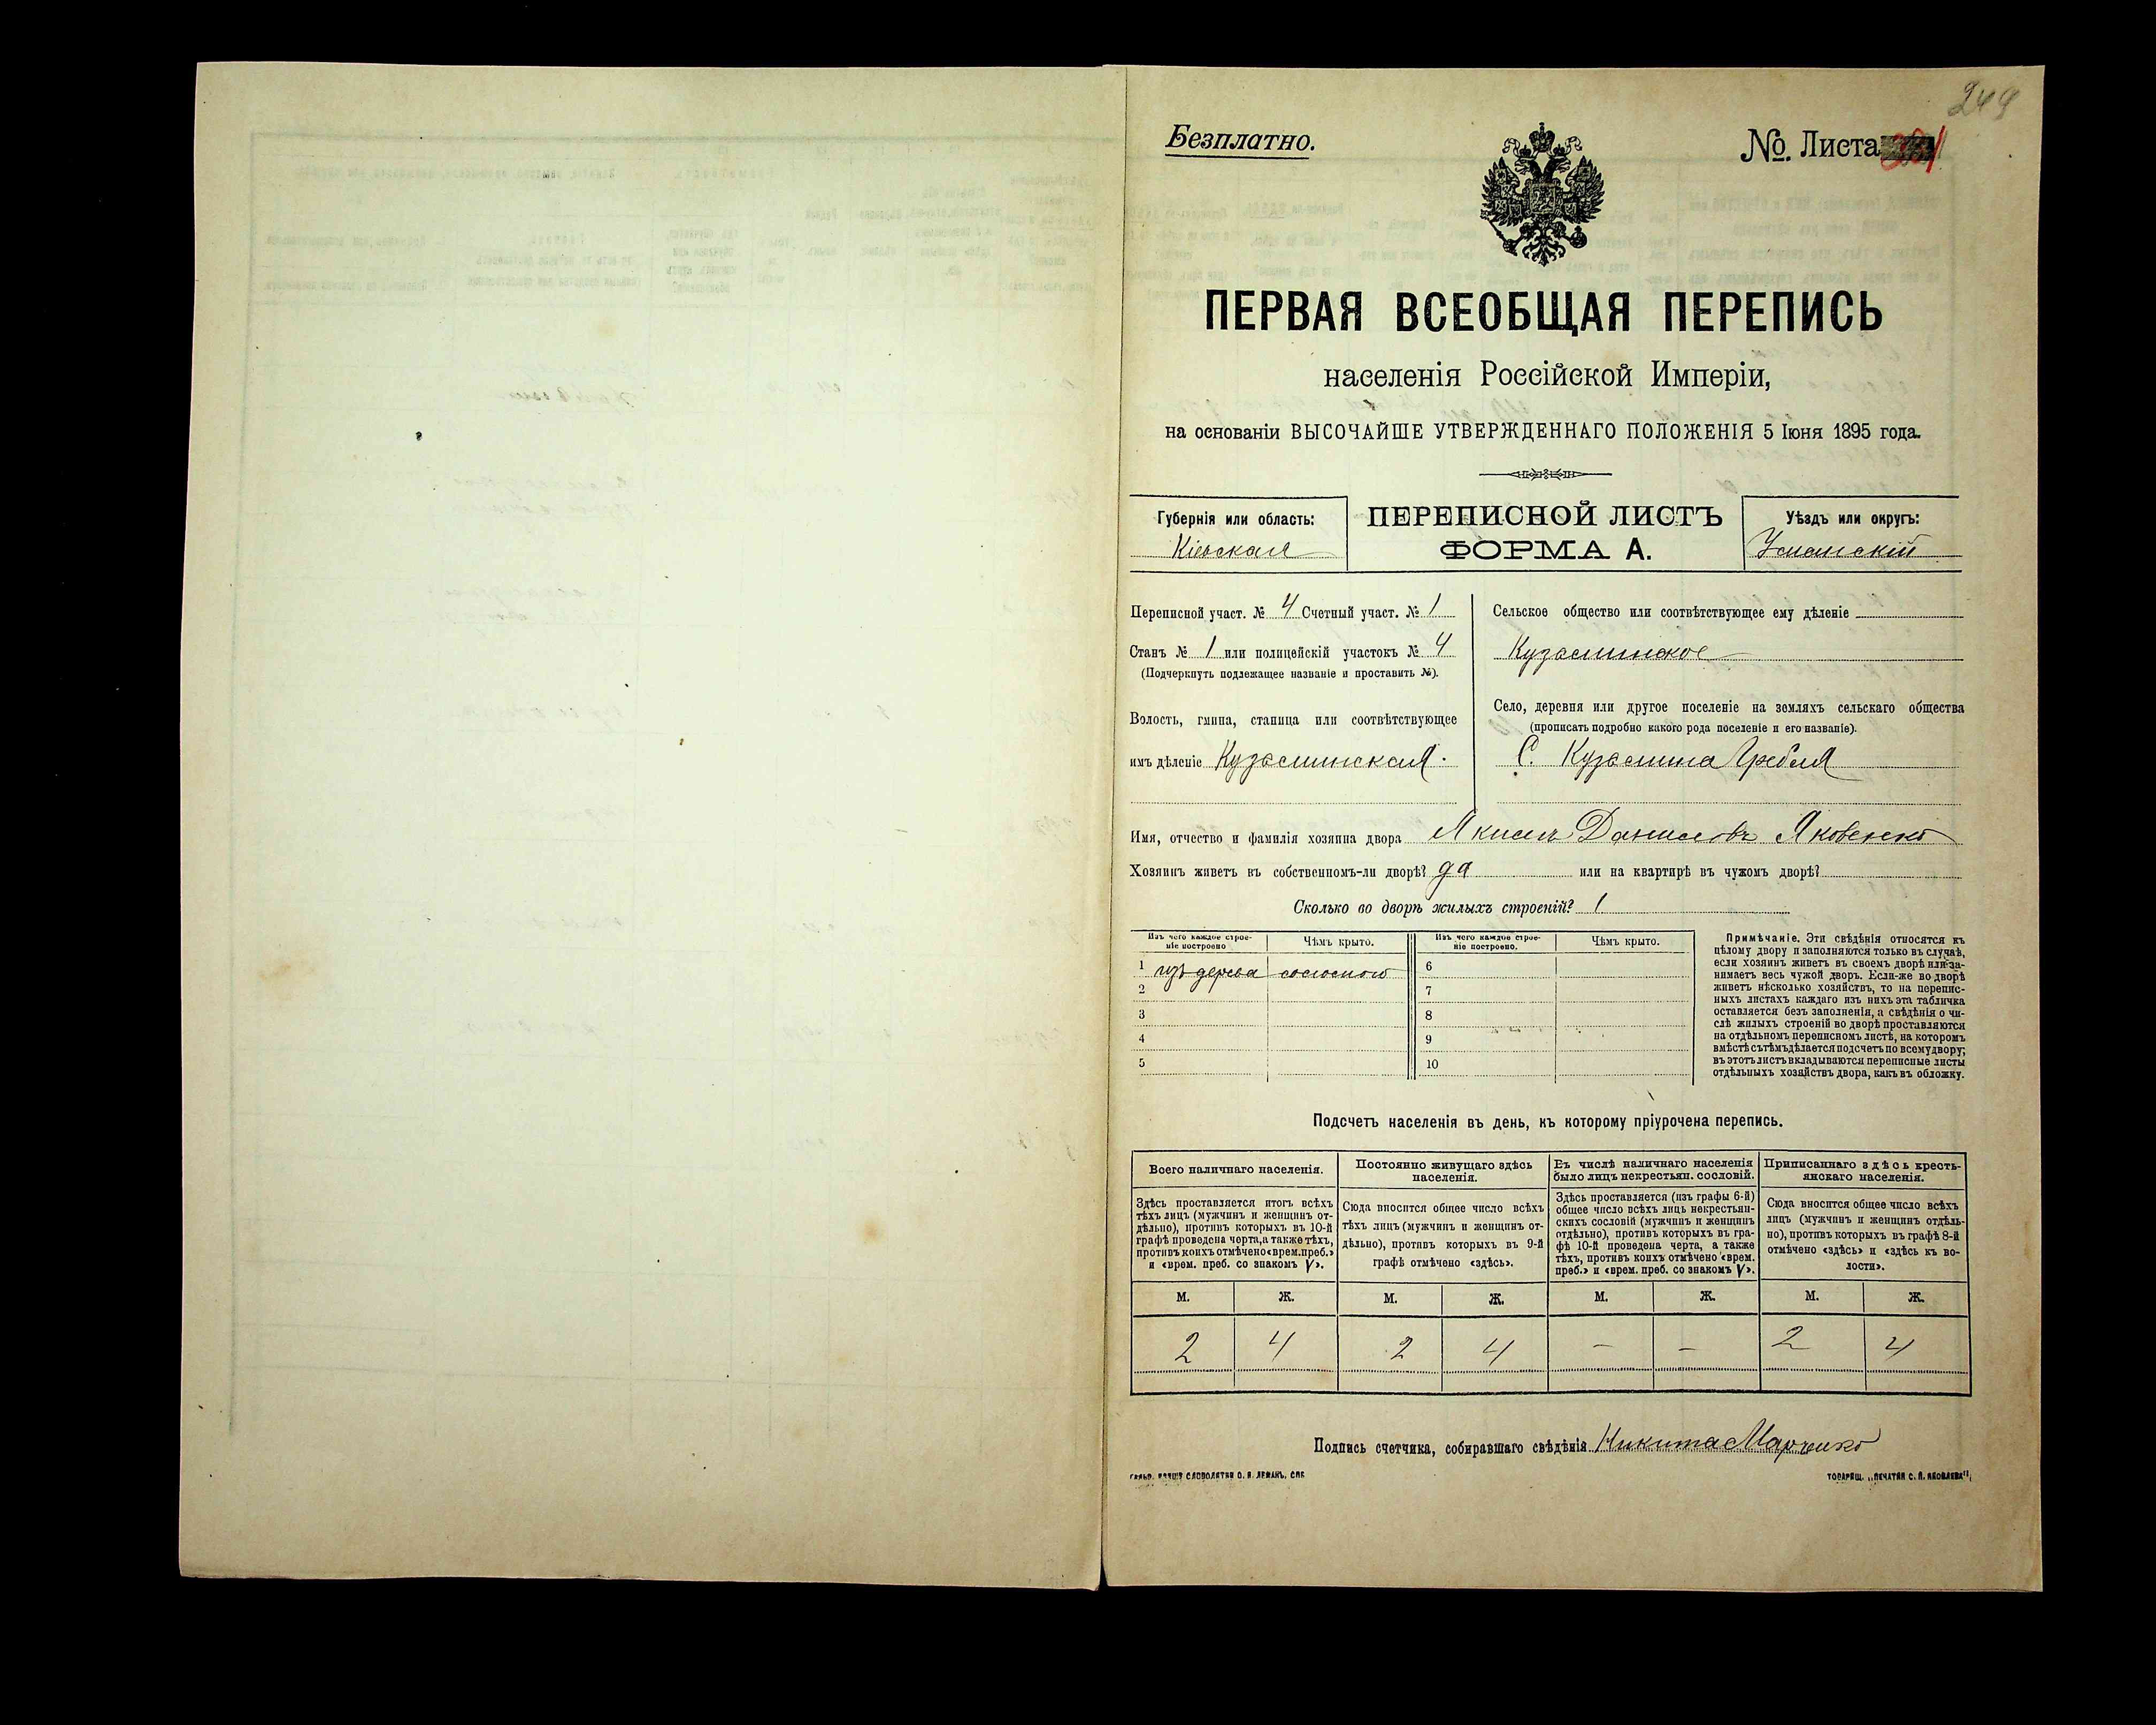 249
Безплатно.
№. Листа
ПЕРВАЯ ВСЕОБЩАЯ ПЕРЕПИСЬ
населенія Россійской Имперіи,
на основаніи ВЫСОЧАЙШЕ УТВЕРЖДЕННАГО ПОЛОЖЕНІЯ 5 Іюня 1895 года.
Губернія или область:
Кіевская
ПЕРЕПИСНОЙ ЛИСТЪ
ФОРМА А.
Уѣздъ или округъ:
Уманскій
Переписной участ. № 4 Счетный участ. № 1
Станъ № 1 или полицейскій участокъ № 4
(Подчеркнуть подлежащее названіе и проставить №).
Волость, гмина, станица или соотвѣтствующее
имъ дѣленіе Кузьминская.
Сельское общество или соотвѣтствующее ему дѣленіе
Кузьминское
Село, деревня или другое поселеніе на земляхъ сельскаго общества
(прописать подробно какого рода поселеніе и его названіе).
С. Кузьмина Гребля
Имя, отчество и фамилія хозяина двора Якимъ Даниловъ Яковенко
Хозяинъ живетъ въ собственномъ-ли дворѣ? да или на квартирѣ въ чужомъ дворѣ?
Сколько во дворѣ жилыхъ строеній? 1
Изъ чего каждое строе-
ніе построено
Чѣмъ крыто.
Изъ чего каждое строе-
ніе построено.
Чѣмъ крыто.
1 изъ дерева соломою 6
2 7
3 8
4 9
5 10
Примѣчаніе. Эти свѣдѣнія относятся къ
цѣлому двору и заполняются только въ случаѣ,
если хозяинъ живетъ въ своемъ дворѣ или за-
нимаетъ весь чужой дворъ. Если-же во дворѣ
живетъ нѣсколько хозяйствъ, то на перепис-
ныхъ листахъ каждаго изъ нихъ эта табличка
оставляется безъ заполненія, а свѣдѣнія о чи-
слѣ жилыхъ строеній во дворѣ проставляются
на отдѣльномъ переписномъ листѣ, на которомъ
вмѣстѣ съ тѣмъ дѣлается подсчетъ по всему двору;
въ этотъ листъ вкладываются переписные листы
отдѣльныхъ хозяйствъ двора, какъ въ обложку.
Подсчетъ населенія въ день, къ которому пріурочена перепись.
Всего наличнаго населенія.
Здѣсь проставляется итогъ всѣхъ
тѣхъ лицъ (мужчинъ и женщинъ от-
дѣльно), противъ которыхъ въ 10-й
графѣ проведена черта, а также тѣхъ,
противъ коихъ отмѣчено «врем. преб.»
и «врем. преб. со знакомъ V».
Постоянно живущаго здѣсь
населенія.
Сюда вносится общее число всѣхъ
тѣхъ лицъ (мужчинъ и женщинъ от-
дѣльно), противъ которыхъ въ 9-й
графѣ отмѣчено «здѣсь».
Въ числѣ наличнаго населенія
было лицъ некрестьян. сословій.
Здѣсь проставляется (изъ графы 6-й)
общее число всѣхъ лицъ некрестьян-
скихъ сословій (мужчинъ и женщинъ
отдѣльно), противъ которыхъ въ гра-
фѣ 10-й проведена черта, а также
тѣхъ, противъ коихъ отмѣчено «врем.
преб.» и «врем. преб. со знакомъ V».
Приписаннаго здѣсь кресть-
янскаго населенія.
Сюда вносится общее число всѣхъ
лицъ (мужчинъ и женщинъ отдѣль-
но), противъ которыхъ въ графѣ 8-й
отмѣчено «здѣсь» и «здѣсь къ во-
лости».
М. Ж. М. Ж. М. Ж. М. Ж.
2 4 2 4 – – 2 4
Подпись счетчика, собиравшаго свѣдѣнія Никита Марченко
СЛОВОЛИТНЯ О. И. ЛЕМАНЪ, СПБ
ТОВАРИЩ. „ПЕЧАТНЯ С. П. ЯКОВЛЕВА“